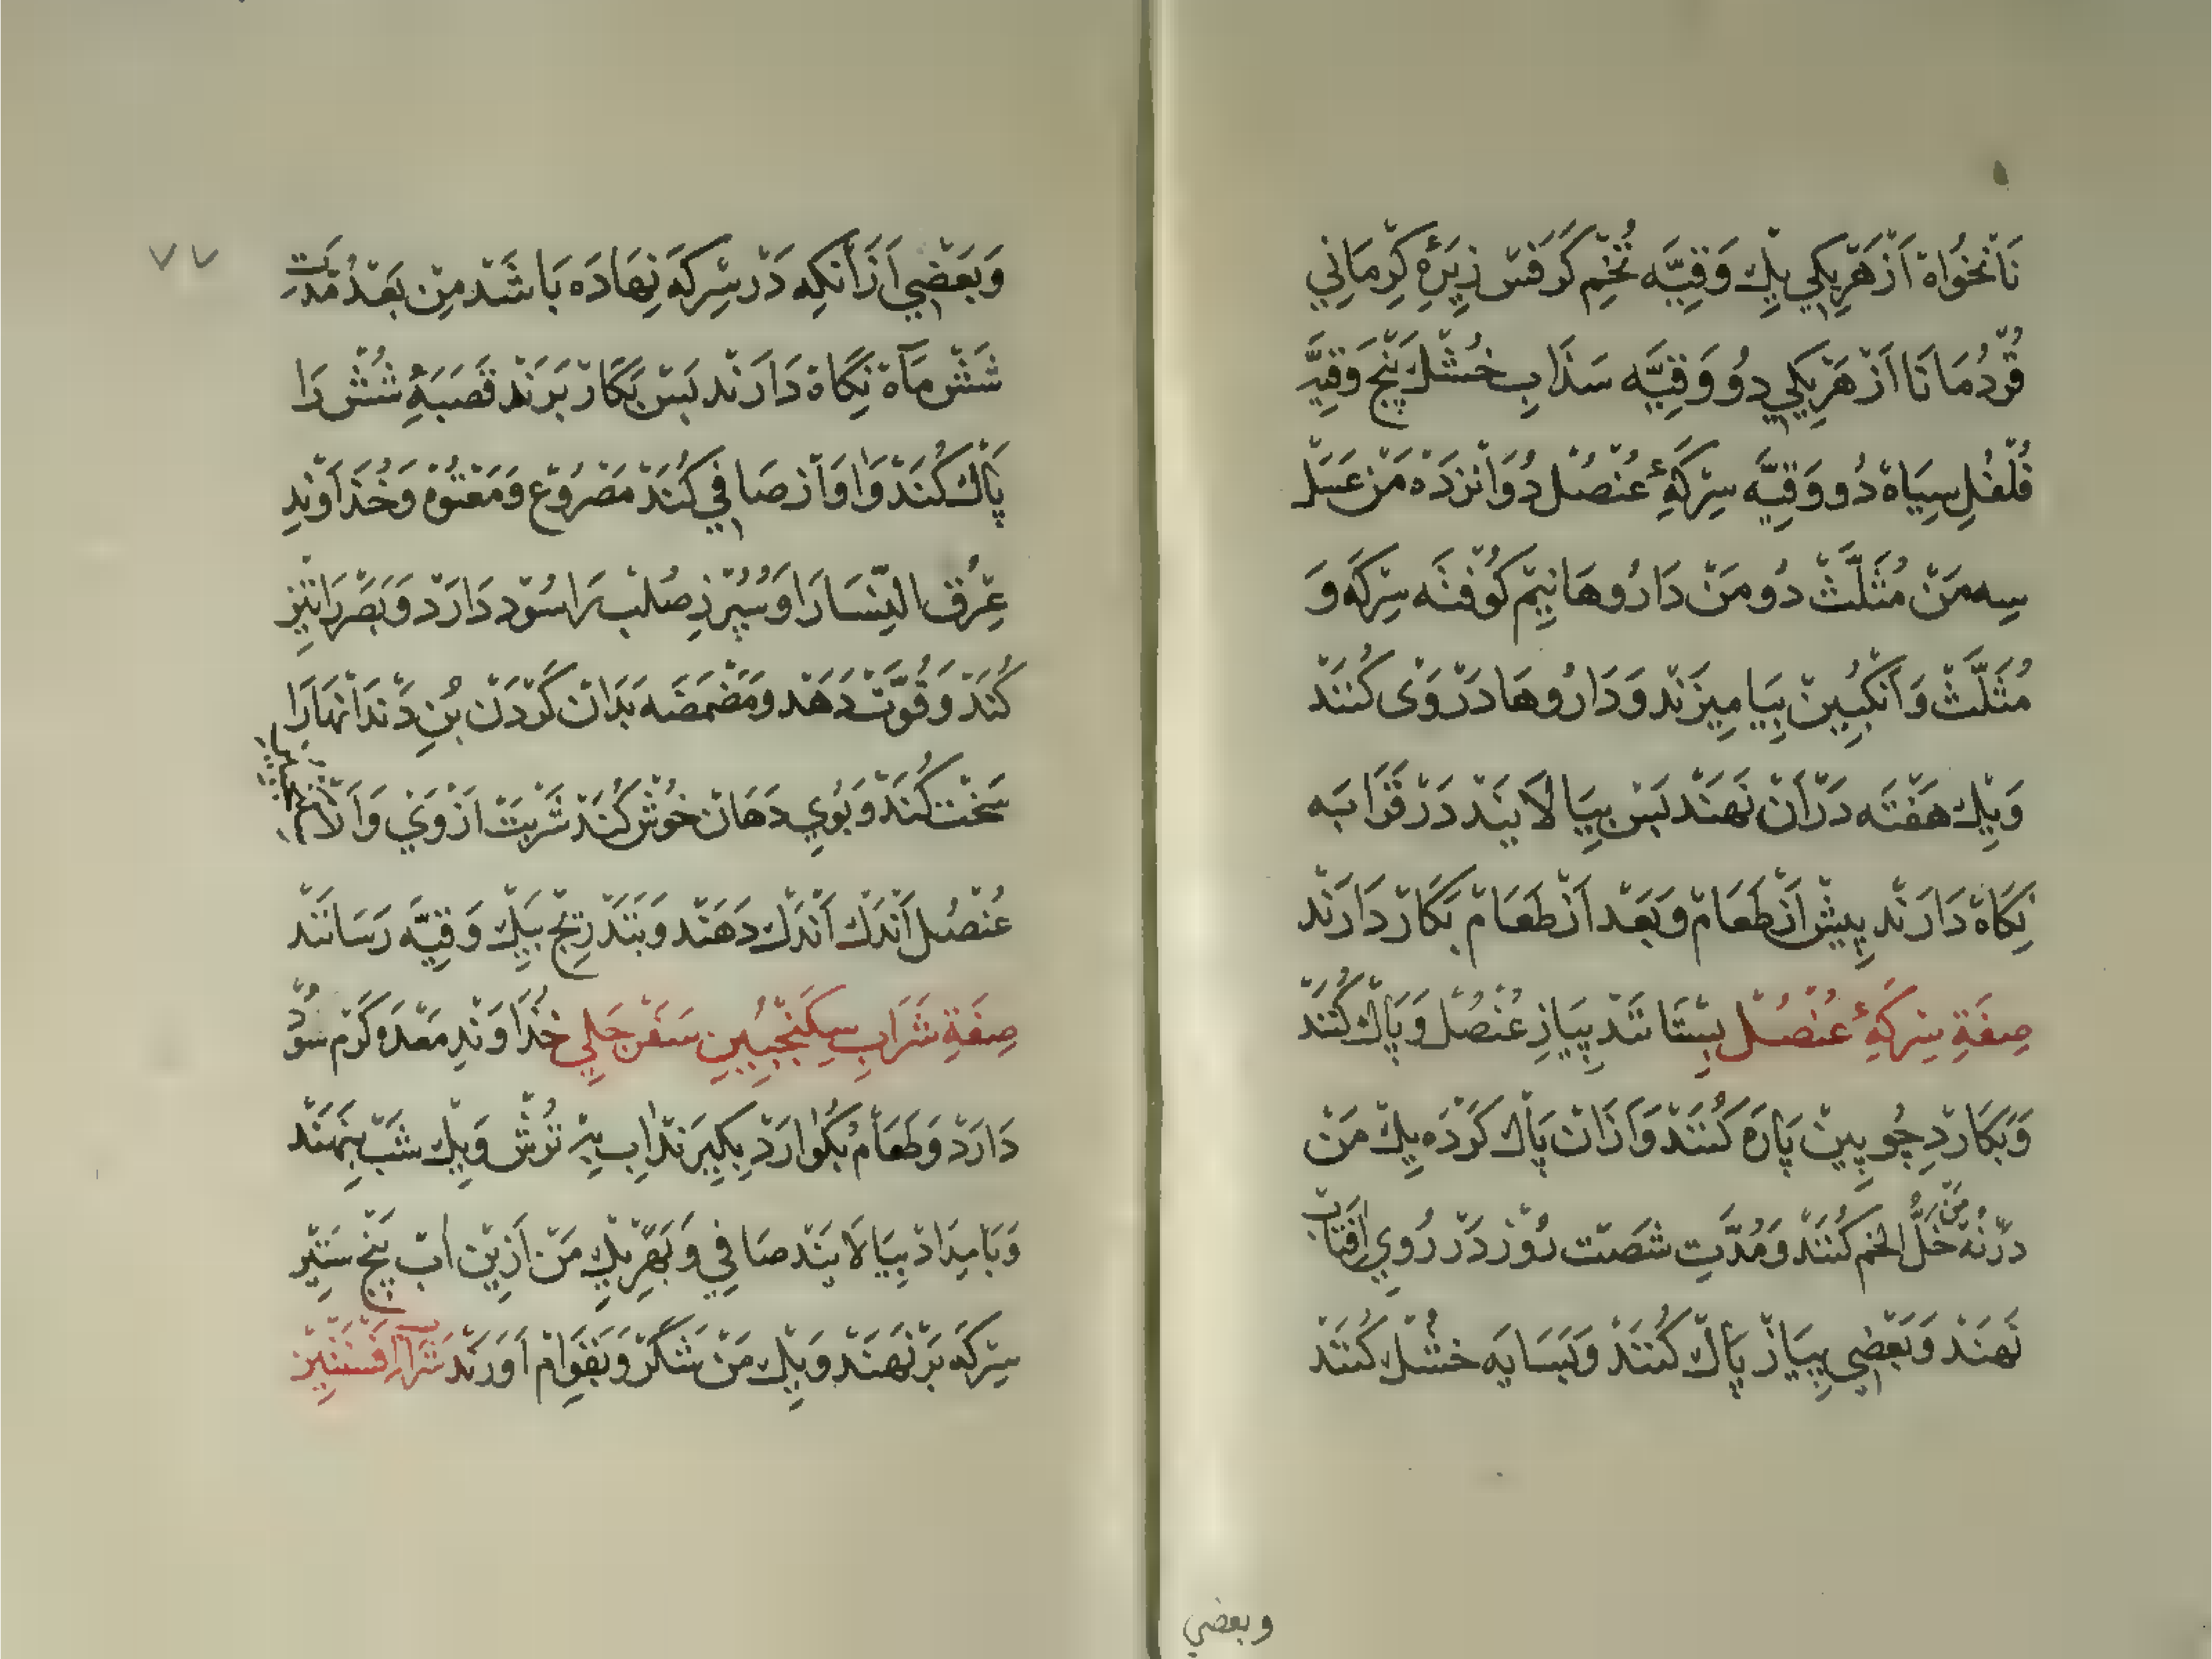 نَانْخُوَاهْ اَزْهَرْيِكِي يِكْ وَقِيَّه تُخْمِ كَرَفْسْ زِيْرَهٔ كِرْمَانِي
قُرْدُمَانَا اَزْهَرْيِكِي دُو وَقِيَّه سَذَابِ خُشْكْ پَنْج وَقِيَّه
فُلْفُلِ سِيَاهْ دُو وَقِيَّه سِرْكَهٔ عُنْصُلْ دُوَانْزْدَهْ مَنْ عَسَلْ
سِه مَنْ مُثَلَّثْ دُو مَنْ دَارُوهَا نِيْم كُوْفْتَه سِرْكَه وَ
مُثَلَّثْ وَاَنْگَبِيْن بِيَامِيزَنْد وَدَارُوهَا دَرْ وَىْ كُنَنْد
وَيِكْ هَفْتَه دَرْآن نَهَنْد پَسْ بِپَالَايَنْد دَرْ قَرَابَه
نِگَاهْ دَارَنْد پِيْش اَزْطَعَامْ وَبَعْد اَزْطَعَامْ بَكَارْ دَارَنْد
صِفَةِ سِرْكَهٔ عُنْصُلْ بِسْتَانَنْد پِيَازِ عُنْصُلْ وَپَاكْ كُنَنْد
وَبَكَارْدِ چُوبِيْن پَارَه كُنَنْد وَاَزْآن پَاكْ كَرْدَه يِكْ مَنْ
دَرْنُهْ مَنْ خَلُّ الخمر كُنَنْد وَمُدَّتِ شَصْت رُوْز دَرْ رُوِي اٰفْتَاب
نَهَنْد وَبَعْضِي پِيَازْ پَاكْ كُنَنْد وَبَسَايَه خُشْكْ كُنَنْد
وبعضي
٧٧
وَبَعْضِي اَزْآنكِه دَرْ سِرْكَه نِهَادَه بَاشَنْد مِنْ بَعْد مُدَّتِ
شَشْ مَاهْ نِگَاهْ دَارَنْد پَسْ بَكَارْ بَرَنْد قَصَبَهٔ شُشْ رَا
پَاكْ كُنَدْ وَاوَازْ صَافِي كُنَدْ مَصْرُوْع وَمَعْتُوْه وَخُذَاوَنْدِ
عِرْقُ النِّسَا رَا وَسُپُرْزِ صُلْب رَا سُوْد دَارَدْ وَبَصَرْ رَا تِيْز
كُنَدْ وَقُوَّتْ دَهَد وَمَضْمَضَه بَدَانْ كَرْدَنْ بُنِ دَنْدَانْهَا رَا
سَخْت كُنَدْ وَبُوِي دَهَانْ خُوْش كُنَدْ شَرْبَتْ اَزْوَىْ وَاَلَّا
عُنْصُل اَنْدَكْ اَنْدَكْ دَهَنْد وَبَتَدْرِيْج بِيَكْ وَقِيَّه رَسَانَنْد
صِفَةِ شَرَابِ سِكَنْجُبِيْنِ سَفَرْجَلِي خُذَاوَنْدِ مَعْدَه گَرْم سُوْد
دَارَدْ وَطَعَامْ بُگْوَارَدْ بِگِيْرَنْد اٰبِ بِهْ تُرُشْ وَيِكْ شَبْ بِنِهَنْد
وَبَامِدَادْ بِپَالَايَنْد صَافِي وَبَهَرْيِكْ مَنْ اَزِيْن اٰبْ پَنْج سَتِيْر
سِرْكَه بَرْنَهَنْد وَيِكْ مَنْ شَكَرْ وَبَقَوَامْ اٰوَرَنْد شَرَابِ اَفْسَنْتِيْن